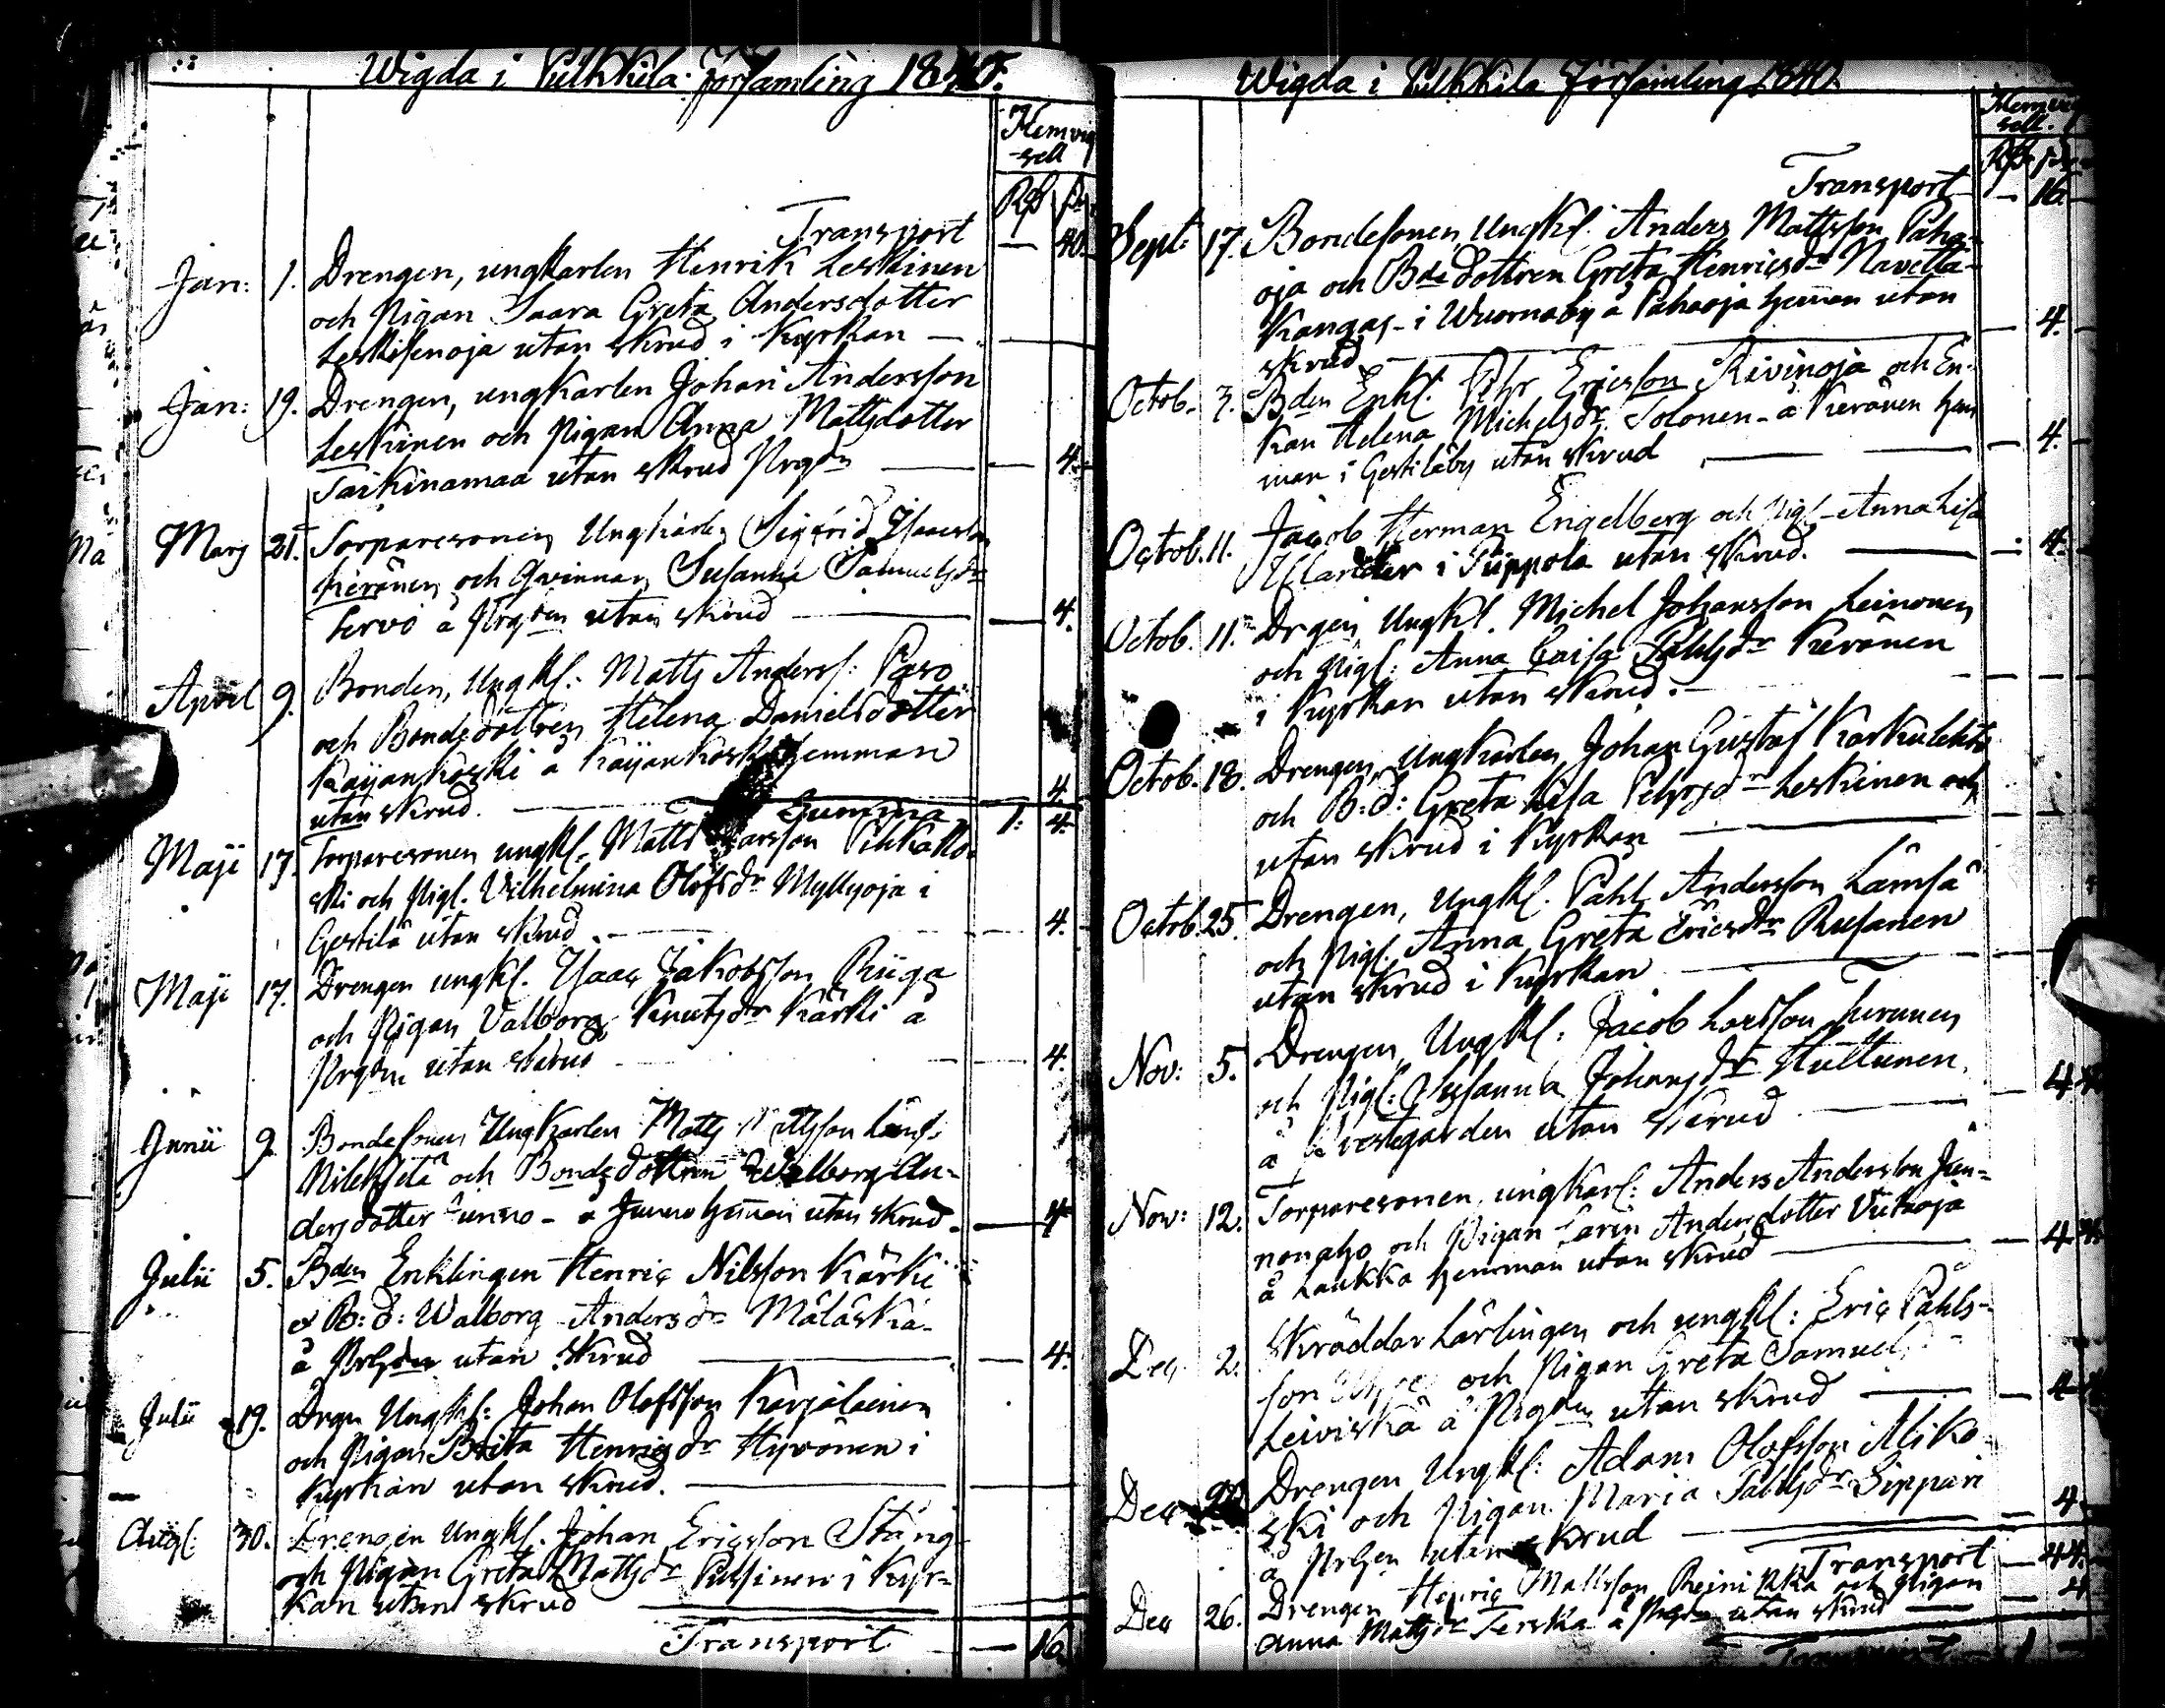 Wigda i Pulkkila Församling 1840.
Hemvig
-sell
Rub
Transport
— 40.
Jan: 1. Drengen, ungkarlen Henrik Leskinen
och Pigan Saara Greta Andersdotter
Leskisenoja utan skrud i Kyrkan —
Jan: 19. Drengen, ungkarlen Johan Andersson
Leskinen och Pigan Anna Mattsdotter
Tarkinamaa utan skrud Prgdn — 4.
Marj 21. Torparesonen Ungkarlen Sigfrid
Kerånen och Qvinnan Susanna Samuelsdr
Servo å Prgden utan skrud — 4.
April 9. Bonden, Ungkl: Matts Anderss:
och Bondedottren Helena Danielsdotter
Käyänkoski å Käyänkoski Hemman
utan skrud. — 4.
Summa 1: 4.
Maji 17. Torparesonen ungkl. Matts Larsson Pihkako-
ski och Pigl. Wilhelmina Olofsdr Myllyoja i
Gestilä utan skrud — 4.
Maji 17. Drengen ungkl. Isaac Jakobsson Riiga
och Pigan Valborg Knutsdr Kärki å
Prgdn utan skrud — 4.
Junii 9. Bondesonen Ungkarlen Matts Mattsson
och Bondedottren Walborg An-
dersdotter Junno - å Junno hemman utan skrud. — 4
Julii 5. Bden Enklingen Henric Nilsson Kärki
o B: d: Walborg Andersdr Mäläskä
å Prgden utan skrud — 4.
Julii 19. Drgn Ungkl: Johan Olofsson Karjalainen
och Pigan Brita Henricsdr Hyvönen i
Kyrkan utan skrud. —
Augl. 30. Drengen Ungkl. Johan Ericsson Stång
och Pigan Greta Mattsdr Pulsinen i Kyr-
kan utan skrud —
Transport — 16.
Wigda i Pulkkila Församling 1840.
Hemvig
sell.
Rub
Transport — 16.
Sept: 17. Bondesonen Ungkl. Anders Mattsson Paha-
oja och Bde dottren Greta Henricsdr Navetta-
Kangas - i Wuornoby å Pahaoja hemman utan
skrud — 4.
Octob. 3. Bden Enkl. Pehr Ericsson Rivinoja och En-
kan Helena Michelsdr. Tolonen - å Kerånen hem
man i Gestiläby utan skrud — 4.
Octob. 11. Jacob Herman Engelberg och Pigl. Anna Lisa
i Piippola utan skrud. — 4.
Octob. 11. Drgen Ungkl. Michel Johansson Leinonen
och Pigl: Anna Caisa Påhlsdr Kerånen
i Kyrkan utan skrud. —
Octob. 18. Drengen Ungkarlen Johan Gustaf Karkulehto
och B: d: Greta Lisa Pehrsdr Leskinen och
utan skrud i Kyrkan —
Octob. 25. Drengen, Ungkl. Påhl Andersson Lämsä
och Pigl. Anna Greta Ericsdr Rusanen
utan skrud i Kyrkan —
Nov: 5. Drengen, Ungkl: Jacob Larsson Turunen
och Pigl: Susanna Johansdr Huttunen
å Prestgården utan skrud — 4
Nov: 12. Torparesonen ungkarl: Anders Andersson Jun-
nonaho och Pigan Carin Andersdotter Viitaoja
å Laukka hemman utan skrud — 4
Dec 2. Skräddar Lärlingen och ungkl: Eric Påhls-
son och Pigan Greta Samuelsdr
Leiviskä å Prgdn utan skrud — 4
Dec Drengen Ungkl: Adam Olofsson Niko
ski och Pigan Maria Påhlsdr Sippari
å Prgen utan skrud — 4
Transport — 44.
Dec 26. Drengen Henric Mattsson Reinikka och Pigan
Anna Mattsdr Terska å Prgdn utan skrud — 4
Transport